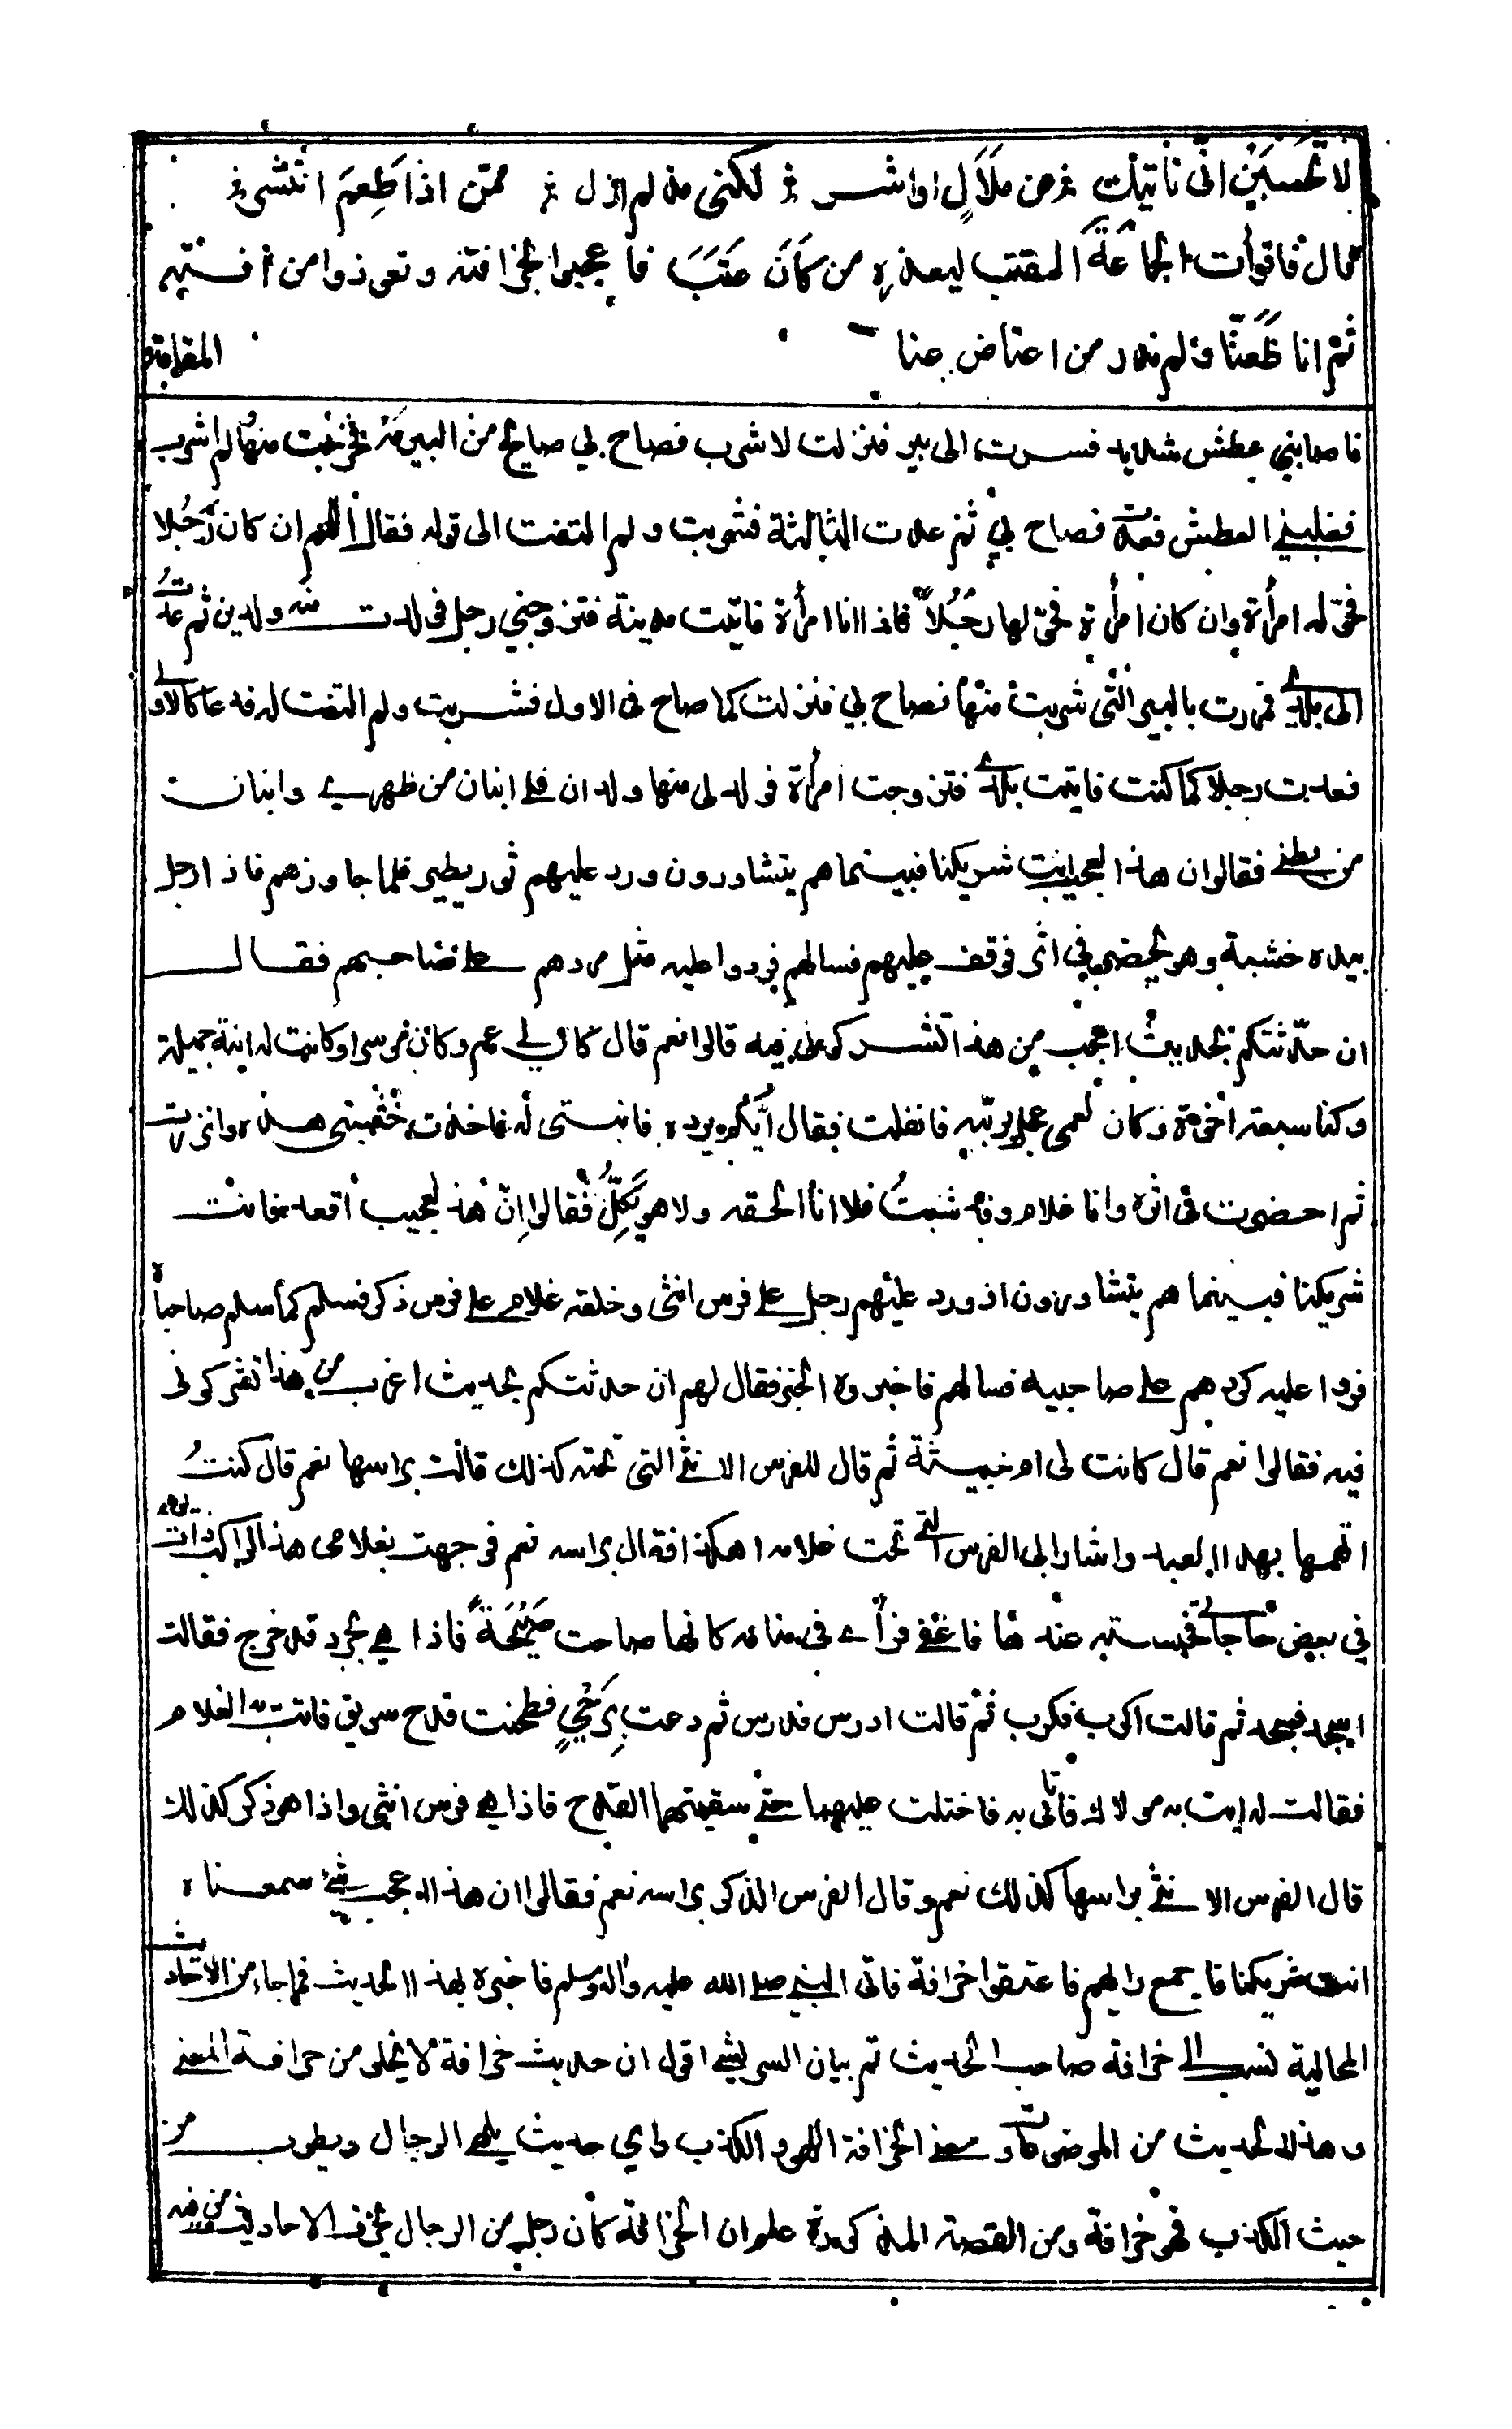 لا تحسبن انى نأيتك عن ملال او اشر لكننى مذ لم ازل ممن اذا طعم انتشر
قال فاقرأت الجماعة المقتب ليعذره من كان عتب فاعجبوا بخرافته وتعوذوا من آفته
ثم انا ظعنا ولم ندر من اعتاض عنا المقامة
فاصابني عطش شديد فسرت الى بير فنزلت لاشرب فصاح بي صايح من البير مه فخرجت منها لم اشرب
فغلبني العطش فعدت فصاح بي ثم عدت الثالثة فشربت ولم التفت الى قوله فقال اللهم ان كان رجلا
فحوله امرأة وان كان امرأة فحولها رجلا فاذا انا امرأة فاتيت مدينة فتزوجني رجل فولدت منه ولدين ثم عدت
الى بلدي فمررت بالبير التى شربت منها فصاح بي فنزلت كما صاح فى الاول فشربت ولم التفت له فدعا كالاول
فعدت رجلا كما كنت فاتيت بلدي فتزوجت امرأة فولد لى منها ولدان فلي ابنان من ظهري وابنان
من بطني فقالوا ان هذا لعجيب انت شريكنا فبينما هم يتشاورون ورد عليهم ثور يطير فلما جاوزهم فاذا رجل
بيده خشبة وهو يحضر في اثره فوقف عليهم فسالهم فردوا عليه مثل ردهم على صاحبهم فقال
ان حدثتكم بحديث اعجب من هذا اتشركونى فيه قالوا نعم قال كان لي عم وكان موسرا وكانت له ابنة جميلة
وكنا سبعة اخوة وكان لعمى عجل يربيه فانفلت فقال ايكم يرده فابنتى له فاخذت خشبتى هذه واتزرت
ثم احضرت فى اثره وانا غلام وقد شبت فلا انا الحقه ولا هو يكل فقالوا ان هذا لعجيب اقعد فانت
شريكنا فبينما هم يتشاورون اذ ورد عليهم رجل على فرس انثى وخلفه غلام على فرس ذكر فسلم كما سلم صاحباه
فردوا عليه كردهم على صاحبيه فسالهم فاخبروه الخبر فقال لهم ان حدثتكم بحديث اغرب من هذا تشركونى
فيه فقالوا نعم قال كانت لى ام خبيثة ثم قال للفرس الانثى التى تحته كذلك قالت براسها نعم قال كنت
اتهمها بهذا العبد واشار الى الفرس التي تحت غلامه اهكذا فقال براسه نعم فوجهت بغلامى هذا الراكب ذات يوم
في بعض حاجاتي فحبسته عندها فاغفى فرأى فى منامه كانها صاحت صيحة فاذا هي بجرد قد خرج فقالت
اسجد فسجد ثم قالت اكرب فكرب ثم قالت ادرس فدرس ثم دعت برحي فطحنت قدح سويق فاتت به الغلام
فقالت له ايت به مولاك فاتى به فاحتلت عليهما حتى سقيتهما القدح فاذا هي فرس انثى واذا هو ذكر كذلك
قال الفرس الانثى براسها كذلك نعم وقال الفرس الذكر براسه نعم فقالوا ان هذا اعجب شئ سمعناه
انت شريكنا فاجمع رايهم فاعتقوا خرافة فاتى النبي صلى الله عليه واله وسلم فاخبره بهذا الحديث فما جاء من الاحاديث
المحالية نسب الى خرافة صاحب الحديث تم بيان الشريشي اقول ان حديث خرافة لا يخلى من خرافة المعنى
وهذا الحديث من الموضوعات ومعنى الخرافة اللهو والكذب واي حديث يلهي الرجال ويطرب من
حيث الكذب فهو خرافة ومن القصة المذكورة علم ان الخرافة كان رجل من الرجال يخرف الاحاديث من فيه